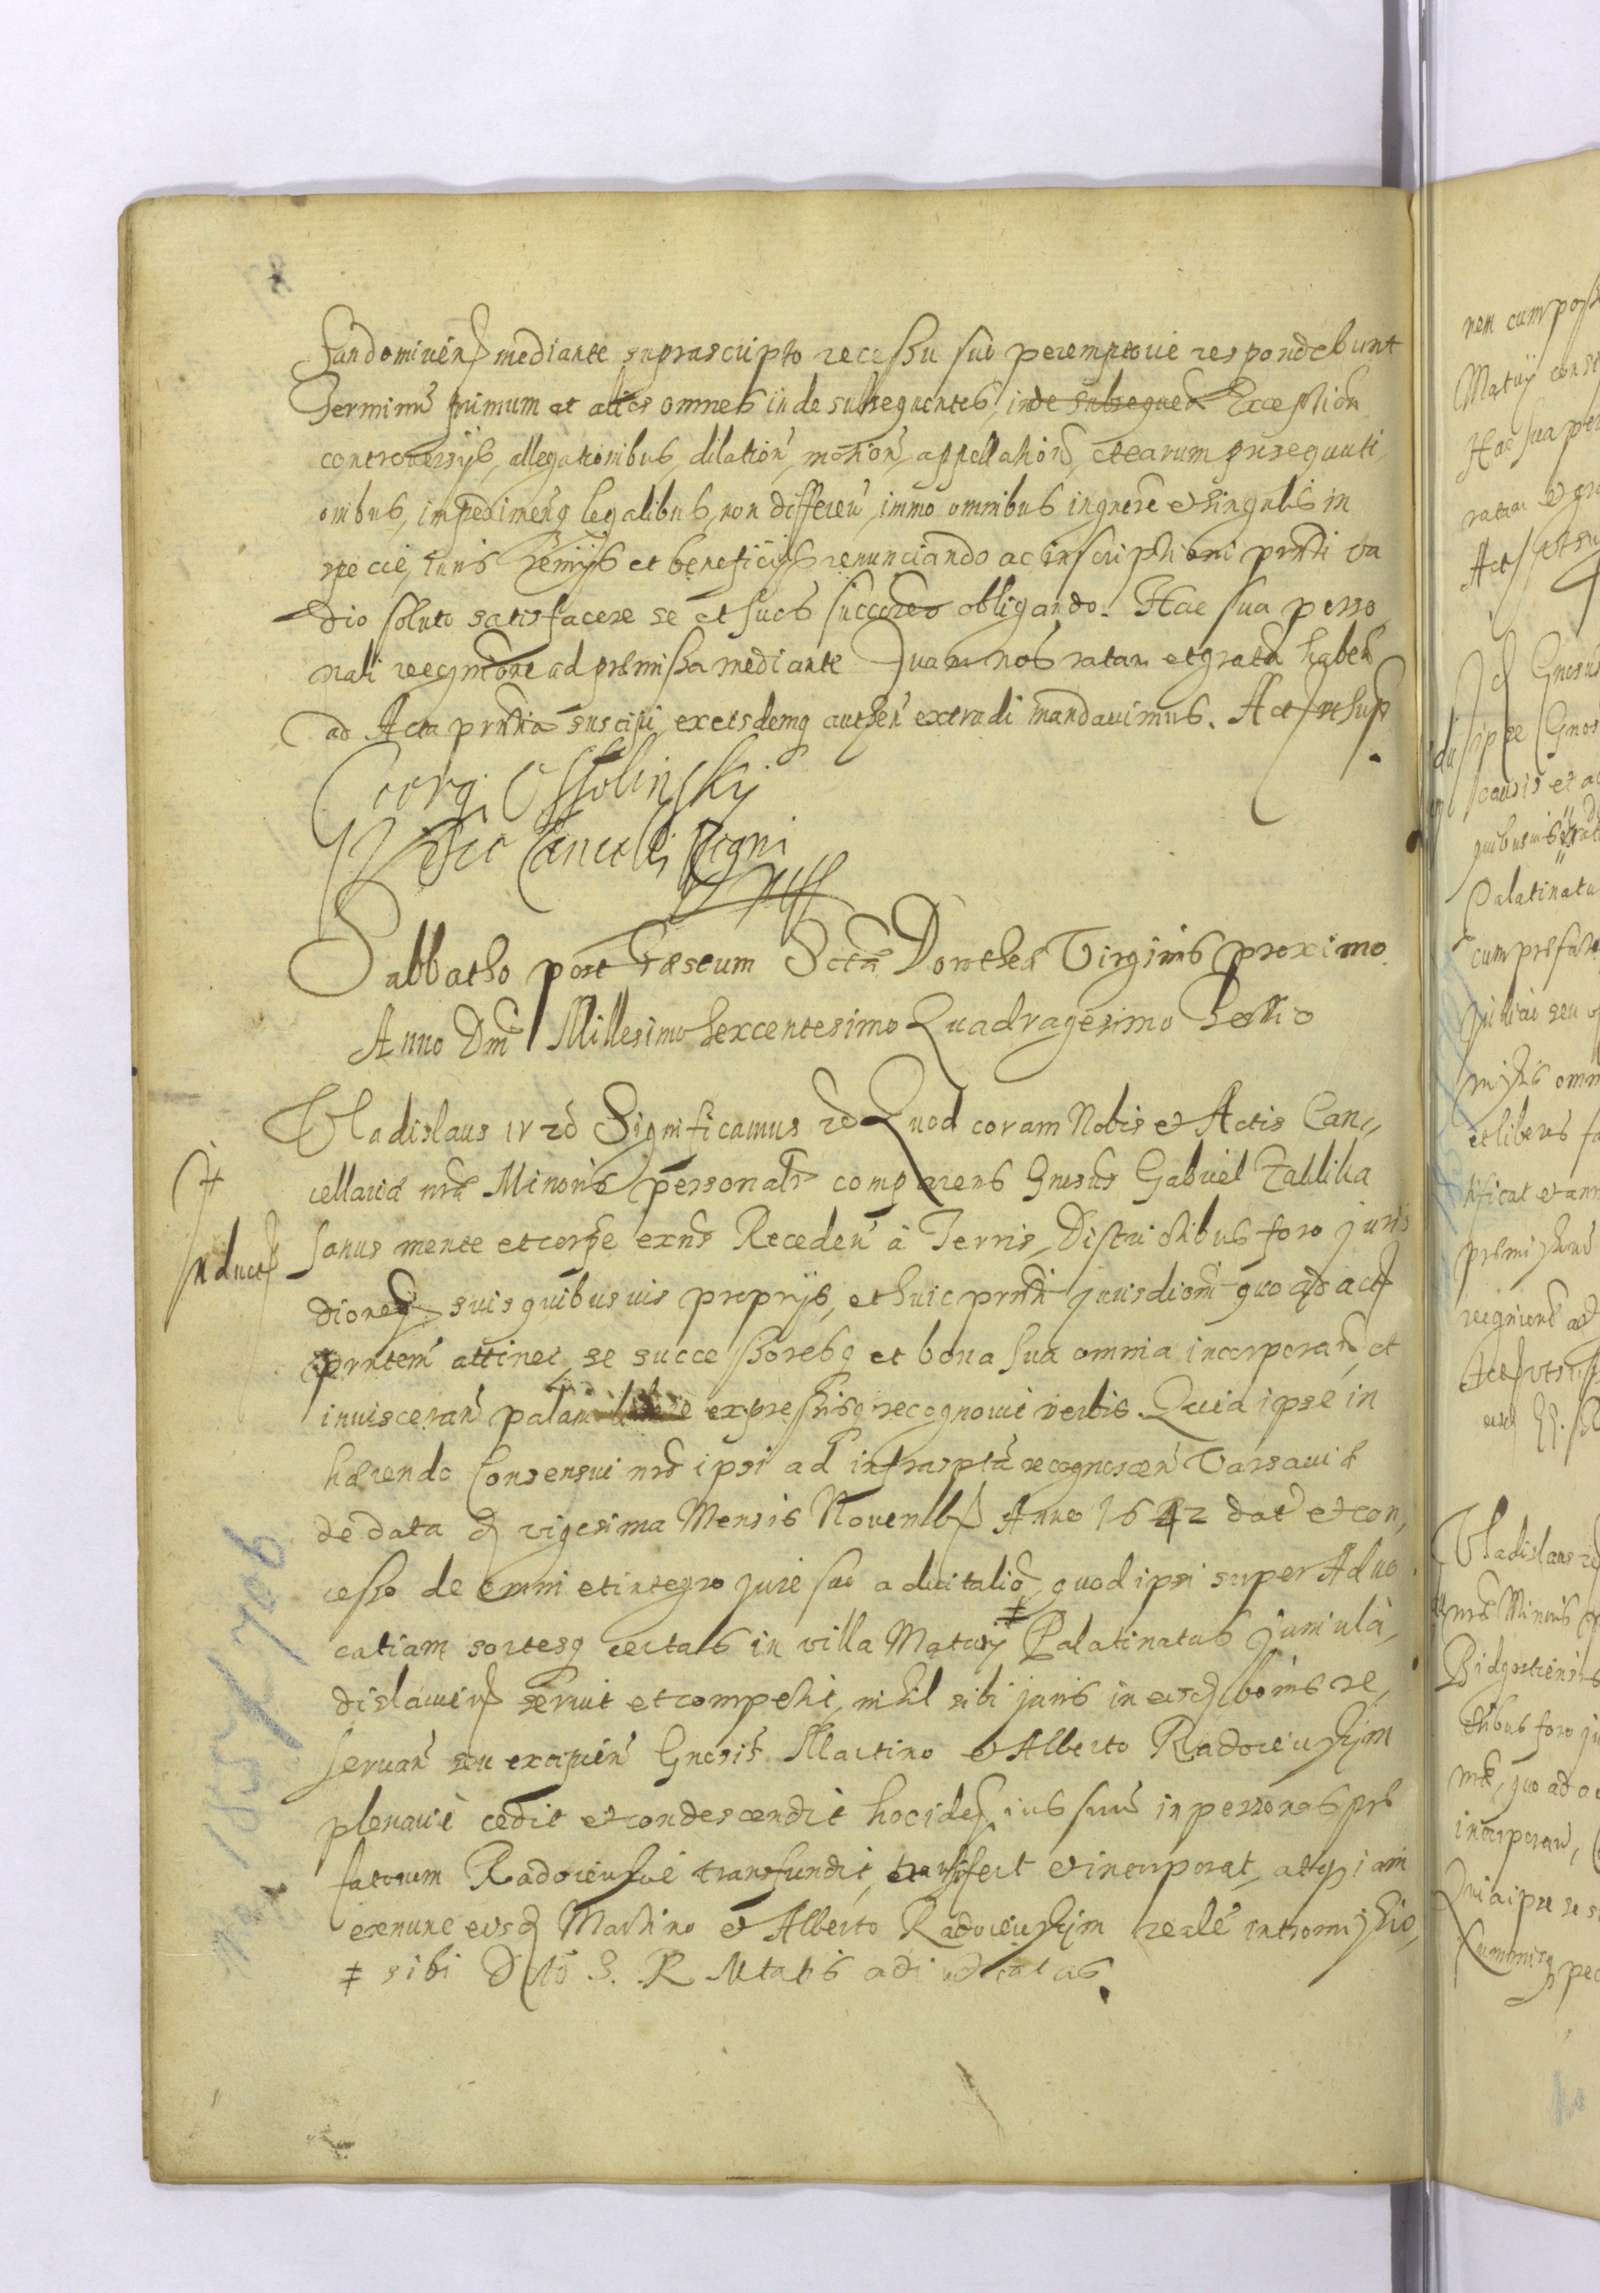 Sandomirien mediante suprascripto recessu suo peremptorie respondebunt
Terminu primum et alios omnes inde subsequentes, inde subsequen Exception
controversijs, allegationibus, dilation, motion, appellation, etearum prosequuti
onibus, impedimen legalibus, non differen, immo omnibus in gnere et singulis in
specie, iuris remijs et beneficijs renunciando ac inscriptioni prnti va
dio soluto satisfacere se et suos succores obligando. Hac sua perso
nali recgnitione ad praemissa mediante Quam nos ratam et gratam haben
ad Acta prntia suscipi, ex eisdemq authen extradi mandavimus. Act ut sup
Georg Ossolinsky
Vice Cancell Regni
Sabbatho post Festum Sctae Dorotheae Virginis proximo
Anno Dni Millesimo Sexcentesimo Quadragesimo Tertio
Vladislaus IV Significamus Quod coram Nobis et Actis Can
cellariae nrae Minoris personalr comparens Gnrosus Gabriel Zaklika
Inducts
sanus mente et corpe exns Receden à Terris, Districtibus foro juris
dioneq suis quibusvis proprijs, et huic prnti jurisdioni quo ad act
prntem attinet, se successoresq et bona sua omnia incorporan et
invisceran palam libere expressisq recognovit verbis. Quia ipse in
haerendo Consensui nro ipsi ad infrasptam recognoscen Varsaviae
de data vigesima Mensis Novemb Anno 1642 dat et con
cesso de omni et integro jure suo advitalio, quod ipsi super Advo
catiam sortesq certas in villa Matwy ‡ Palatinatus Juniula
dislavien servit et competit, nihil sibi juris in eisd bonis re
servan seu excipien Gnrosis Martino et Alberto Radoievskim
plenarie cedit et condescendit hoc idem ius suum in personas prae
fatorum Radoievskie transfundit, transfert et incorporat, atq iam
exnunc eisd Martino et Alberto Radoievskim realem intromissio
‡ sibi S. R Mtatis adiudicatas.
185 706